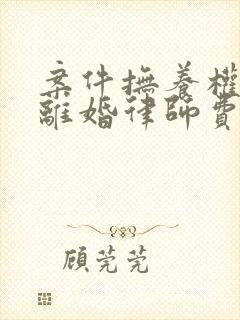 案件撫養權
離婚律師費
顧莞莞